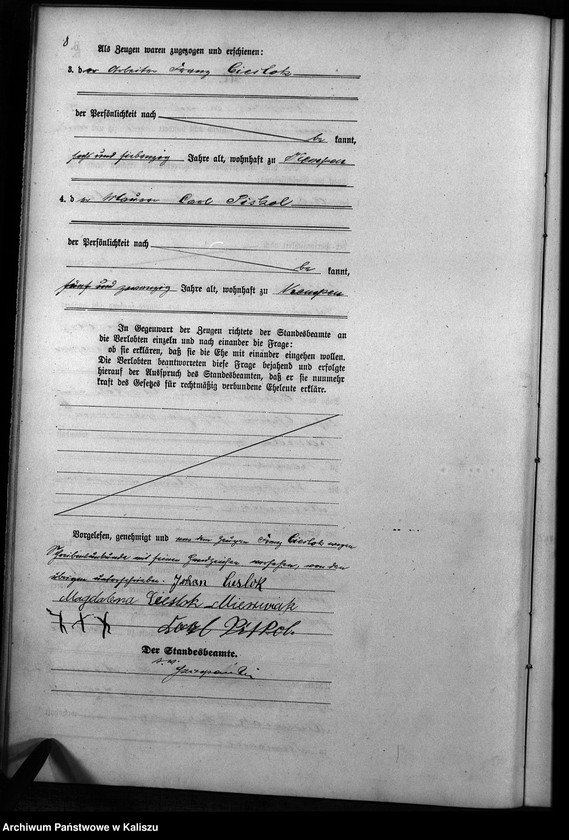 8
Als Zeugen waren zugezogen und erschienen:
3. der Arbeiter Franz Cieslok
der Persönlichkeit nach
be kannt,
sechs und siebenzig Jahre alt, wohnhaft zu Kempen
4. der Maurer Carl Piskol
der Persönlichkeit nach
be kannt,
fünf und zwanzig Jahre alt, wohnhaft zu Kempen
In Gegenwart der Zeugen richtete der Standesbeamte an
die Verlobten einzeln und nach einander die Frage:
ob sie erklären, daß sie die Ehe mit einander eingehen wollen.
Die Verlobten beantworteten diese Frage bejahend und erfolgte
hierauf der Ausspruch des Standesbeamten, daß er sie nunmehr
kraft des Gesetzes für rechtmäßig verbundene Eheleute erkläre.
Vorgelesen, genehmigt und von dem Zeugen Franz Cieslok wegen
Schreibensunkunde mit seinem Handzeichen versehen, von den
übrigen unterschrieben. Johan Cieslok
Magdalena Cieslok
+ + + Carl Piskol.
Der Standesbeamte.
Archiwum Państwowe w Kaliszu